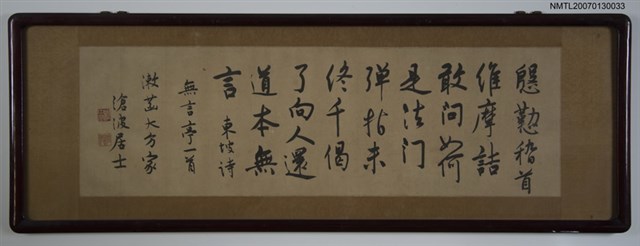 NMTL20070130033
慇懃稽首
維摩詰
敢問如何
是法門
弹指未
終千偈
了向人還
道本無
言 東坡诗
無言亭一首
漱菡大方家
滄波居士